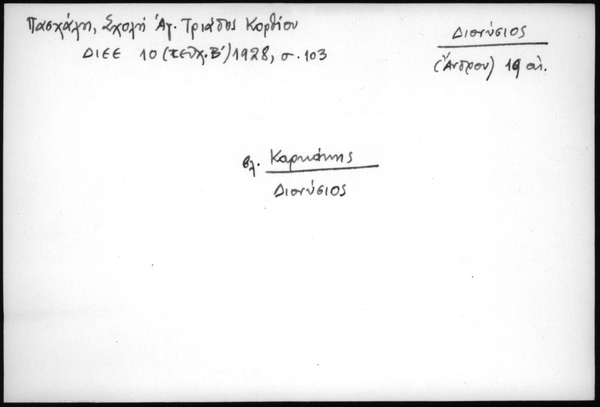 Πασχάλη, Σχολή Ἁγ. Τριάδος Κορθίου
ΔΙΕΕ 10 (τεῦχ. Β΄) 1928, σ. 103
Διονύσιος
(Ἄνδρου) 19 αἰ.
βλ. Καρπάκης
Διονύσιος